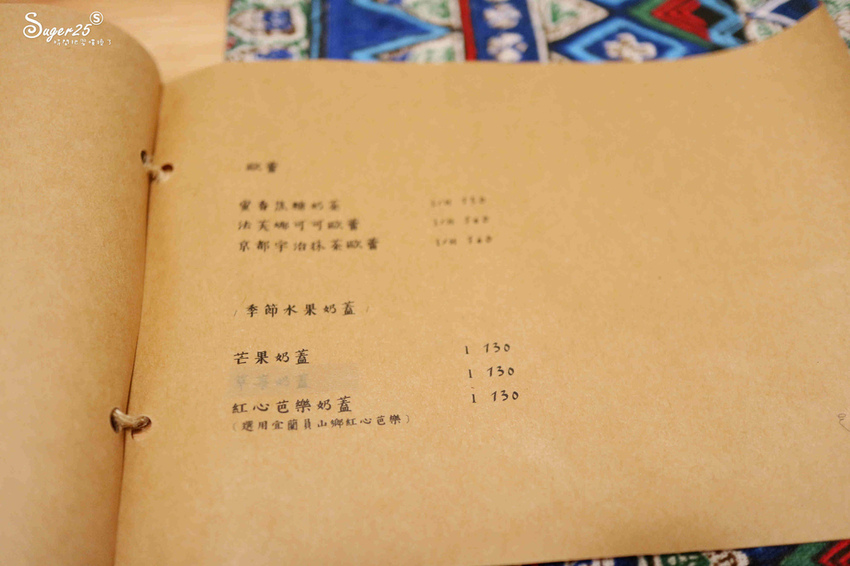 Suger25
S
歐蕾
蜜香焦糖奶茶
法芙娜可可歐蕾
京都宇治抹茶歐蕾
/ 季節水果奶蓋 /
芒果奶蓋 I 130
I 130
紅心芭樂奶蓋 I 130
(選用宜蘭員山鄉紅心芭樂)